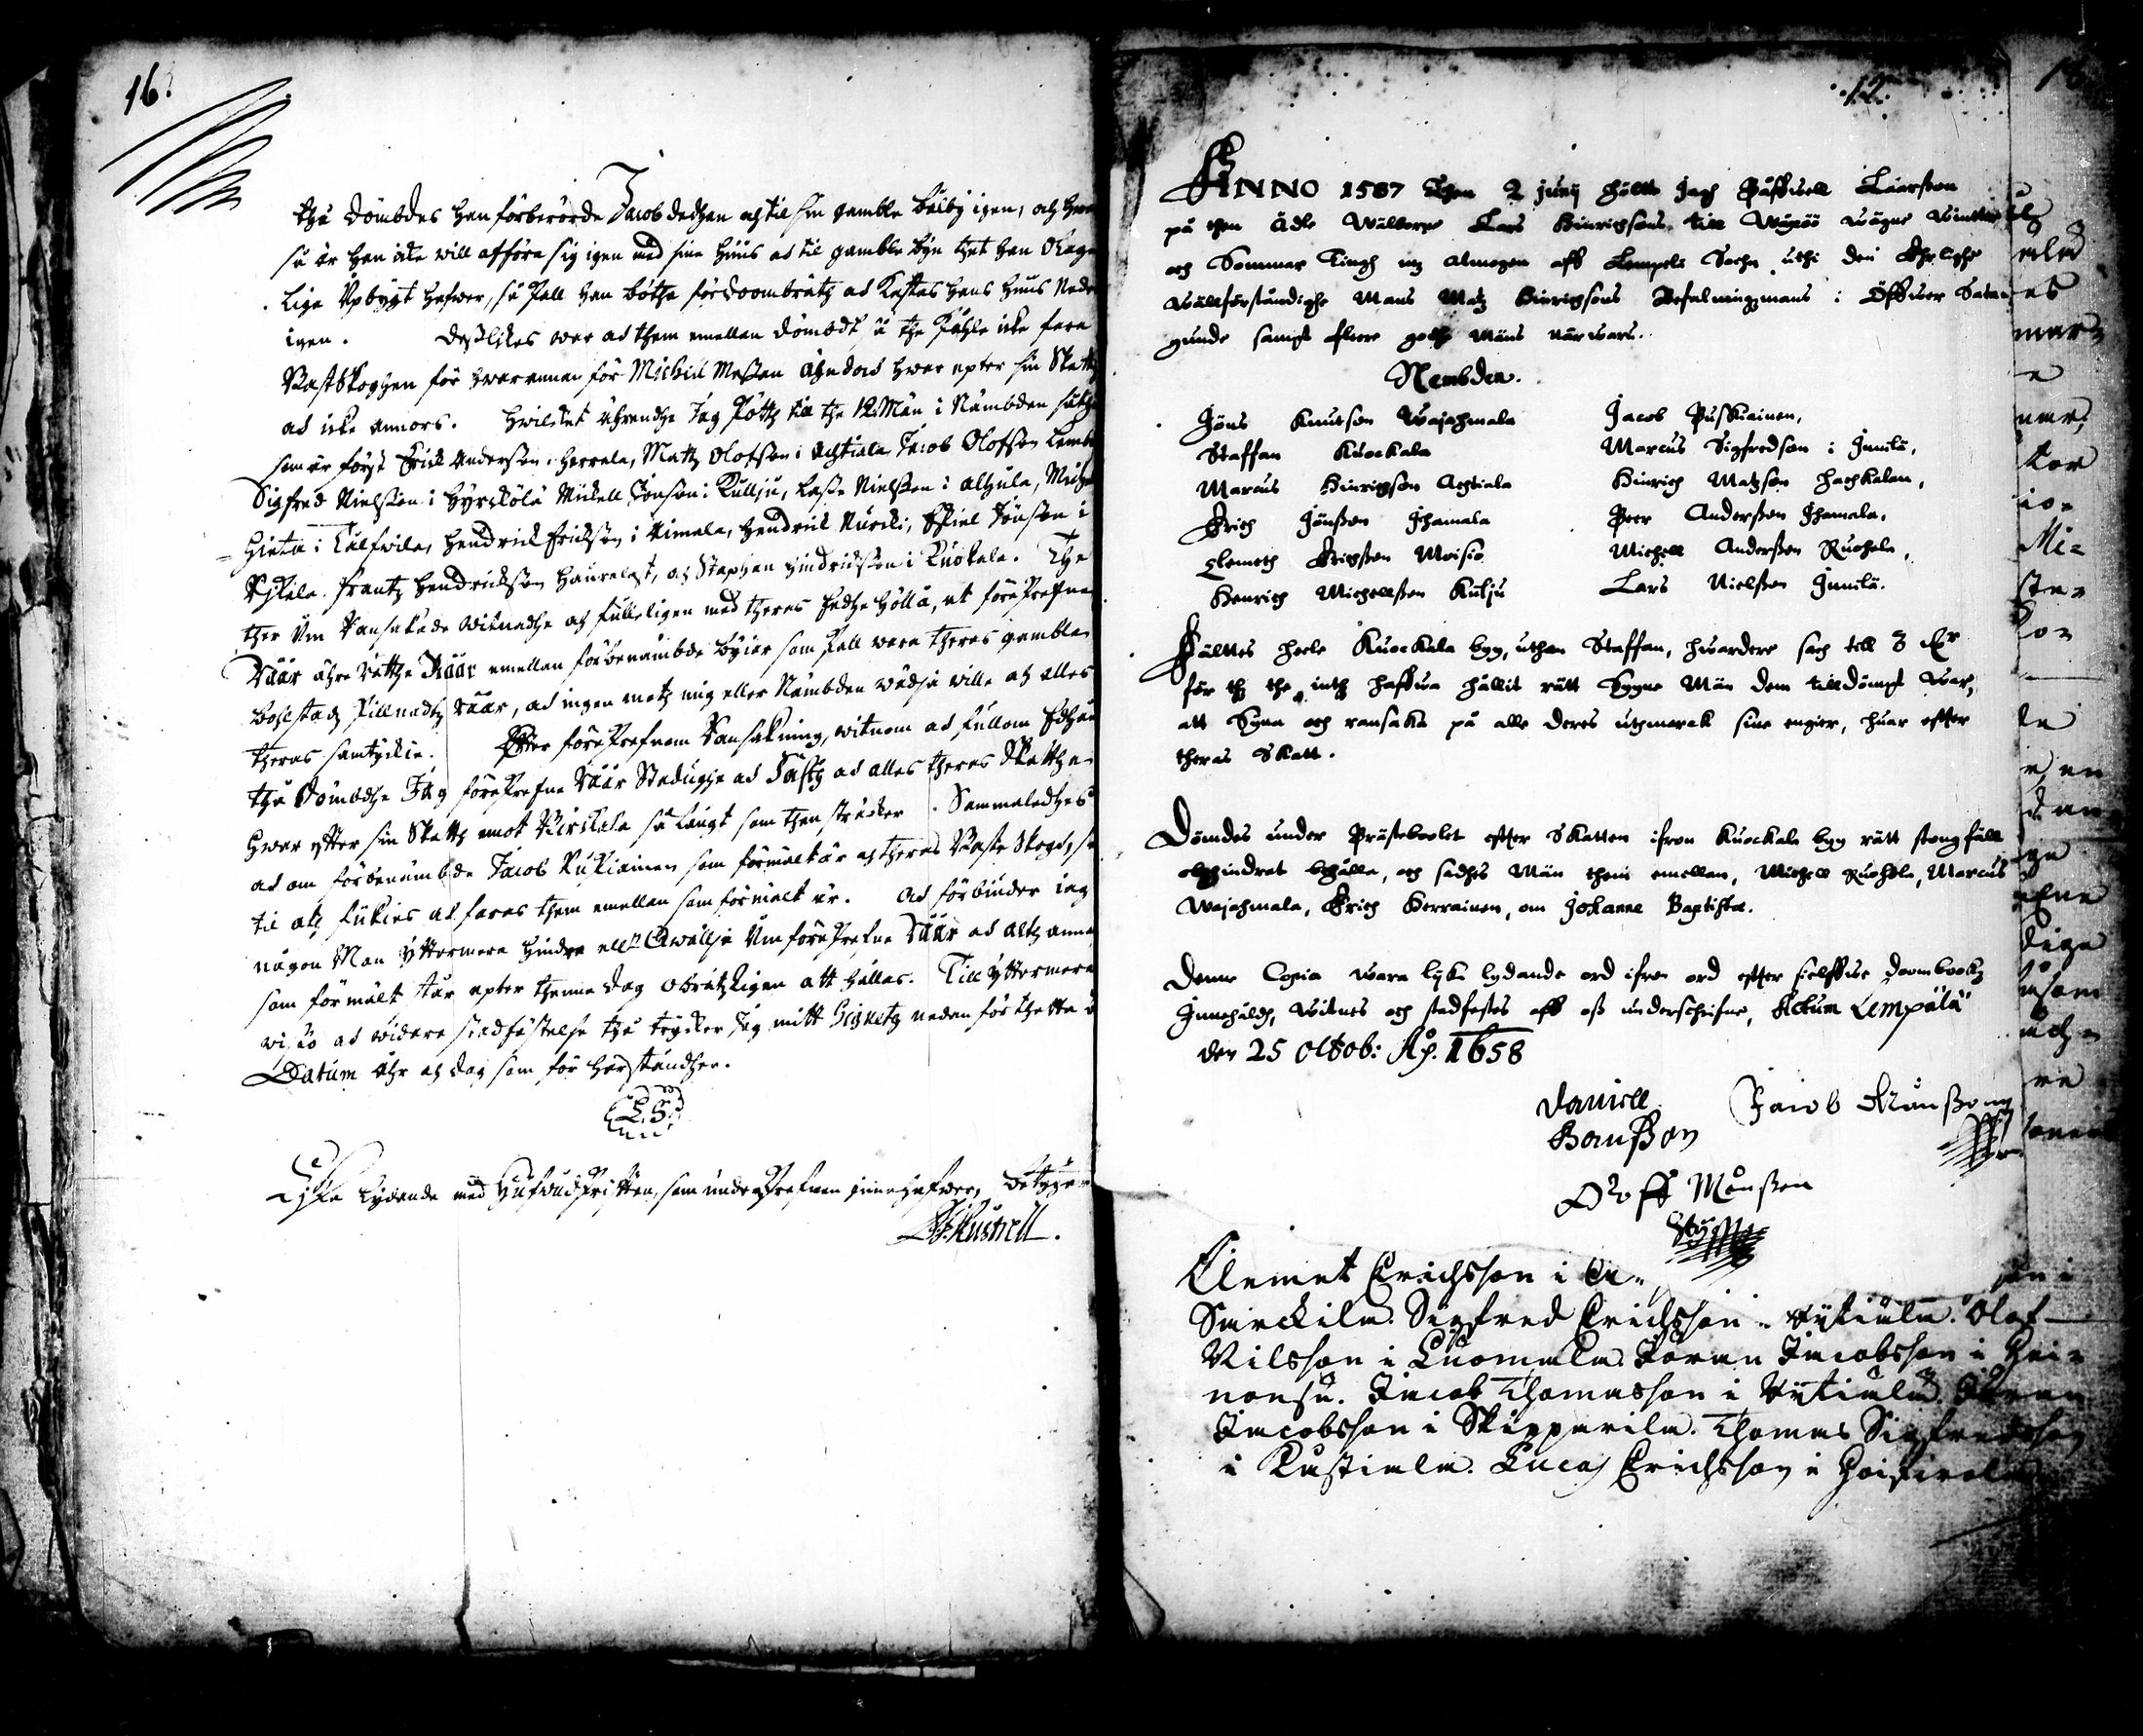 16.
thå dömbdes han förberörde Jacob dedhan och til sin gamble bålby igen, och hwar
så är han icke will afföra sig igen med sine huus ad til gamble byn thet han Olage
lige Upbygt hafwer, så skall han böthe för doombråtz ad kastas hans huus neder
igen. Deslikes war ad them emellan dömbdt at the skole icke fara
Rastskoghen för hwarannan för Michill Messan uthan dock hwar epter sin Skatt
ad icke annors. Hwilcket ährendhe Jag skötz till the 12 Män i Nämbden såthe
som är först Erick Anderson i Herrala, Mattz Olofson i Achtiala Jacob Olofson Lembi
Sigfred Nielsson i Hyrckölä Mickell Jonson i Kulju, Lasse Nielsson i Alhula, Michel
Hieta i Kulfwila, Hendrick Erickson i Nimala, Hendrick Nurcki, Eskiel Jönson i
frantz Hendrickson Haurelast, och Staphan Hindrickson i Kuokala. The
ther Um Ransakade witnadhe och fulleligen med theras Eedhe höllä, at föreskrefne
Råår ähre rätte Råår emellan förbenämbde byiar som skall wara theras gamble
bohlstadz skillnadtz råår, ad ingen motz mig eller Nämbden wädja wille och alles
theras samtyckie. Efter föreskrefnom Ransakning, witnom ad fullom Edhom
thå Dömbdhe Jag föreskrefne Råår Stadughe ad fasth ad alles theras Skatthe
hwar efter sin Skatth emot Kirskala så långt som then sträcker. Sammaledhes
ad om förbenämbde Jacob Puskiainen som förmält är och theras Raste skogh, så
til och fiskies at faras them emellan som förmält är. Ad förbinder iag
någon Man Yttermera hindra eller Qwällja Um föreskrefne Råår ad altz annat
som förmält står epter thenne dag obrotzligen att hållas. Till Yttermera
wisso ad widare stadfästelse thå trycker Jag mitt Signetz nedan för thetta
Datum Åhr och dag som för här ståndher.
L. S.
Lijka lydande med Hufwudskriften, som underskrefwen innehafwer, betyger
12.
ANNO 1587 Then 2 junij höltt Jagh Påffwell Larsson
på then Ädle Wälborne Lars Hinrichsons till Wägnö wägne Winter
och Sommar Tingh mz almogen aff Lempele Sochn uthi den Ehrlighe
Wällförståndighe Mans Matz Hinrichsons Befalningzmans i Öffwer Satae
gunde sampt flere gode Mäns närwaru.
Nembden.
Jöns Knutson Wajahmala
Jacob Puskiainen,
Staffan Kuockala
Marcus Sigfredson i Innilä,
Marcus Hinrichson Achtiala
Hinrich Matzson Hachkalan,
Erich Jönsson Ihamala
Peer Andersson Ihamala,
Clemeth Erichsson Moisio
Michell Andersson Ruohola,
Henrich Michellsson Kulju
Lars Nielsson Innilä.
Fälttes heele Kuockala byy, uthan Staffan, huardere sach till 3 Mr
för thz the inthz haffwa hållit rätt Sygne Män dem tilldömpt war,
att Syna och ransaka på alle deres uthmarck sine engier, huar effter
theras Skatt.
Dömdes under Prästeboolet effter Skatten ifron Kuockala byy rätt stongfall
obehindrat behålla, och sadhes Män them emellan, Michell Ruohola, Marcus
Wajahmala, Erich Herrainen, om Johanne Baptista.
Denne Copia wara lyka lydande ord ifron ord effter sielffwe doombockz
Innehåldh, Witnes och stadfestes aff oß underschrifne, Actum Lempälä
den 25 Octob: Åhr. 1658
Daniell
Jacob Månsson
Olof Månsson
Clemet Erichsson i
son i
Särckilä. Sigfred Erichsson i Nykiälä. Olof
Nilsson i Luomala. Jöran Jacobsson i Hei-
nonsu. Jacob Thomasson i Nykiälä. Jöran
Jacobsson i Skipparila. Thomas Sigfredsson
i Kustiala. Lucas Erichsson i